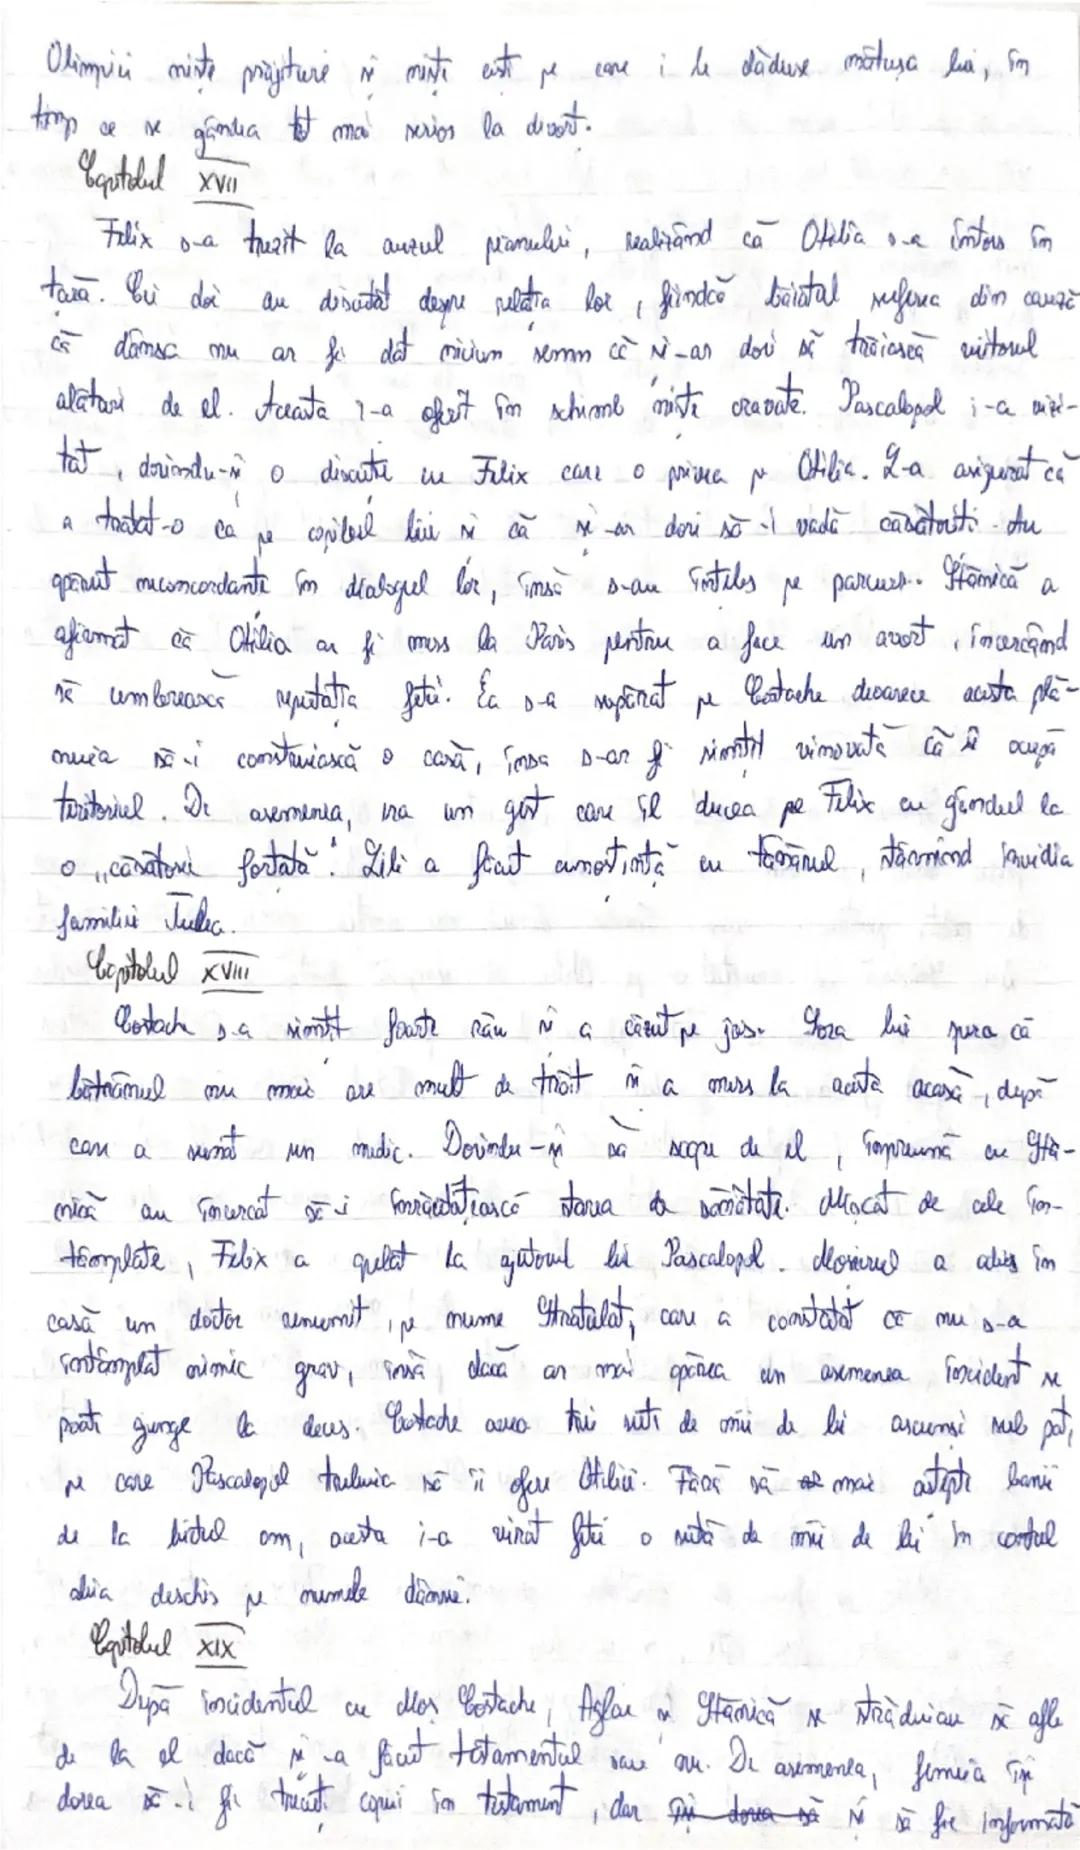 Olimpiei niște prăjituri și niște cărți pe care i le dăduse mătușa lui, în
timp ce se gândea tot mai serios la divorț.
Capitolul XVII
Felix s-a trezit la auzul pianului, realizând că Otilia s-a întors în
țară. Cei doi au discutat despre relația lor, fiindcă băiatul suferea din cauză
că dânsa nu ar fi dat niciun semn că și-ar dori să trăiască viitorul
alături de el. Aceasta i-a oferit în schimb niște cravate. Pascalopol i-a vizi-
tat, dorindu-și o discuție cu Felix care o privea pe Otilia. L-a asigurat că
a tratat-o ca pe copilul lui și că și-ar dori să-i vadă căsătoriți. Au
apărut neconcordanțe în dialogul lor, însă s-au înțeles pe parcurs. Stănică a
afirmat că Otilia ar fi mers la Paris pentru a face un avort, încercând
să umbrească reputația fetei. Ea s-a supărat pe Costache deoarece acesta plă-
nuia să-i construiască o casă, însă s-ar fi simțit vinovată că îi ocupă
teritoriul. De asemenea, era un gest care îl ducea pe Felix cu gândul la
o „căsătorie forțată". Lili a făcut cunoștință cu tânărul, stârnind invidia
familiei Tulea.
Capitolul XVIII
Costache s-a simțit foarte rău și a căzut pe jos. Sora lui spera că
bătrânul nu mai are mult de trăit și a mers la acesta acasă, după
care a sunat un medic. Dorindu-și să scape de el, împreună cu Stă-
nică au încercat să-i înrăutățească starea de sănătate. Mișcat de cele în-
tâmplate, Felix a apelat la ajutorul lui Pascalopol. Moșierul a adus în
casă un doctor renumit, pe nume Stratulat, care a constatat că nu s-a
întâmplat nimic grav, însă dacă ar mai apărea un asemenea incident se
poate ajunge la deces. Costache avea trei sute de mii de lei ascunși sub pat,
pe care Pascalopol trebuie să îi ofere Otiliei. Fără să mai aștepte banii
de la bietul om, acesta i-a virat fetei o sută de mii de lei în contul
abia deschis pe numele dânsei.
Capitolul XIX
După incidentul cu Moș Costache, Aglae și Stănică se străduiau să afle
de la el dacă și-a făcut testamentul sau nu. De asemenea, femeia își
dorea să-i fie trecuți copiii în testament, dar își dorea să și să fie informată